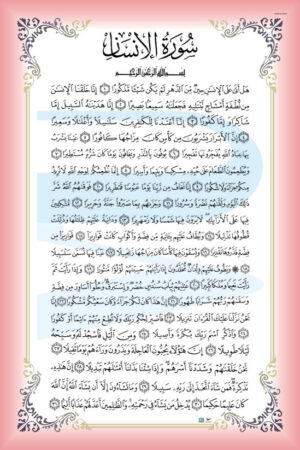 سُورَةُ الإِنْسَانِ
بِسْمِ اللَّهِ الرَّحْمَٰنِ الرَّحِيمِ
هَلْ أَتَىٰ عَلَى الْإِنسَانِ حِينٌ مِّنَ الدَّهْرِ لَمْ يَكُن شَيْئًا مَّذْكُورًا ﴿١﴾ إِنَّا خَلَقْنَا الْإِنسَانَ
مِن نُّطْفَةٍ أَمْشَاجٍ نَّبْتَلِيهِ فَجَعَلْنَاهُ سَمِيعًا بَصِيرًا ﴿٢﴾ إِنَّا هَدَيْنَاهُ السَّبِيلَ إِمَّا
شَاكِرًا وَإِمَّا كَفُورًا ﴿٣﴾ إِنَّا أَعْتَدْنَا لِلْكَافِرِينَ سَلَاسِلَ وَأَغْلَالًا وَسَعِيرًا
﴿٤﴾ إِنَّ الْأَبْرَارَ يَشْرَبُونَ مِن كَأْسٍ كَانَ مِزَاجُهَا كَافُورًا ﴿٥﴾ عَيْنًا يَشْرَبُ
بِهَا عِبَادُ اللَّهِ يُفَجِّرُونَهَا تَفْجِيرًا ﴿٦﴾ يُوفُونَ بِالنَّذْرِ وَيَخَافُونَ يَوْمًا كَانَ شَرُّهُ مُسْتَطِيرًا ﴿٧﴾
وَيُطْعِمُونَ الطَّعَامَ عَلَىٰ حُبِّهِ مِسْكِينًا وَيَتِيمًا وَأَسِيرًا ﴿٨﴾ إِنَّمَا نُطْعِمُكُمْ لِوَجْهِ اللَّهِ لَا نُرِيدُ
مِنكُمْ جَزَاءً وَلَا شُكُورًا ﴿٩﴾ إِنَّا نَخَافُ مِن رَّبِّنَا يَوْمًا عَبُوسًا قَمْطَرِيرًا ﴿١٠﴾ فَوَقَاهُمُ اللَّهُ شَرَّ
ذَٰلِكَ الْيَوْمِ وَلَقَّاهُمْ نَضْرَةً وَسُرُورًا ﴿١١﴾ وَجَزَاهُم بِمَا صَبَرُوا جَنَّةً وَحَرِيرًا ﴿١٢﴾ مُّتَّكِئِينَ
فِيهَا عَلَى الْأَرَائِكِ لَا يَرَوْنَ فِيهَا شَمْسًا وَلَا زَمْهَرِيرًا ﴿١٣﴾ وَدَانِيَةً عَلَيْهِمْ ظِلَالُهَا وَذُلِّلَتْ
قُطُوفُهَا تَذْلِيلًا ﴿١٤﴾ وَيُطَافُ عَلَيْهِم بِآنِيَةٍ مِّن فِضَّةٍ وَأَكْوَابٍ كَانَتْ قَوَارِيرَا ﴿١٥﴾ قَوَارِيرَ مِن
فِضَّةٍ قَدَّرُوهَا تَقْدِيرًا ﴿١٦﴾ وَيُسْقَوْنَ فِيهَا كَأْسًا كَانَ مِزَاجُهَا زَنجَبِيلًا ﴿١٧﴾ عَيْنًا فِيهَا تُسَمَّىٰ سَلْسَبِيلًا
﴿١٨﴾ ۞ وَيَطُوفُ عَلَيْهِمْ وِلْدَانٌ مُّخَلَّدُونَ إِذَا رَأَيْتَهُمْ حَسِبْتَهُمْ لُؤْلُؤًا مَّنثُورًا ﴿١٩﴾ وَإِذَا رَأَيْتَ ثَمَّ
رَأَيْتَ نَعِيمًا وَمُلْكًا كَبِيرًا ﴿٢٠﴾ عَالِيَهُمْ ثِيَابُ سُندُسٍ خُضْرٌ وَإِسْتَبْرَقٌ وَحُلُّوا أَسَاوِرَ مِن فِضَّةٍ
وَسَقَاهُمْ رَبُّهُمْ شَرَابًا طَهُورًا ﴿٢١﴾ إِنَّ هَٰذَا كَانَ لَكُمْ جَزَاءً وَكَانَ سَعْيُكُم مَّشْكُورًا ﴿٢٢﴾ إِنَّا
نَحْنُ نَزَّلْنَا عَلَيْكَ الْقُرْآنَ تَنزِيلًا ﴿٢٣﴾ فَاصْبِرْ لِحُكْمِ رَبِّكَ وَلَا تُطِعْ مِنْهُمْ آثِمًا أَوْ كَفُورًا
﴿٢٤﴾ وَاذْكُرِ اسْمَ رَبِّكَ بُكْرَةً وَأَصِيلًا ﴿٢٥﴾ وَمِنَ اللَّيْلِ فَاسْجُدْ لَهُ وَسَبِّحْهُ
لَيْلًا طَوِيلًا ﴿٢٦﴾ إِنَّ هَٰؤُلَاءِ يُحِبُّونَ الْعَاجِلَةَ وَيَذَرُونَ وَرَاءَهُمْ يَوْمًا ثَقِيلًا ﴿٢٧﴾
نَّحْنُ خَلَقْنَاهُمْ وَشَدَدْنَا أَسْرَهُمْ وَإِذَا شِئْنَا بَدَّلْنَا أَمْثَالَهُمْ تَبْدِيلًا ﴿٢٨﴾ إِنَّ هَٰذِهِ
تَذْكِرَةٌ فَمَن شَاءَ اتَّخَذَ إِلَىٰ رَبِّهِ سَبِيلًا ﴿٢٩﴾ وَمَا تَشَاءُونَ إِلَّا أَن يَشَاءَ اللَّهُ إِنَّ اللَّهَ
كَانَ عَلِيمًا حَكِيمًا ﴿٣٠﴾ يُدْخِلُ مَن يَشَاءُ فِي رَحْمَتِهِ وَالظَّالِمِينَ أَعَدَّ لَهُمْ عَذَابًا أَلِيمًا ﴿٣١﴾